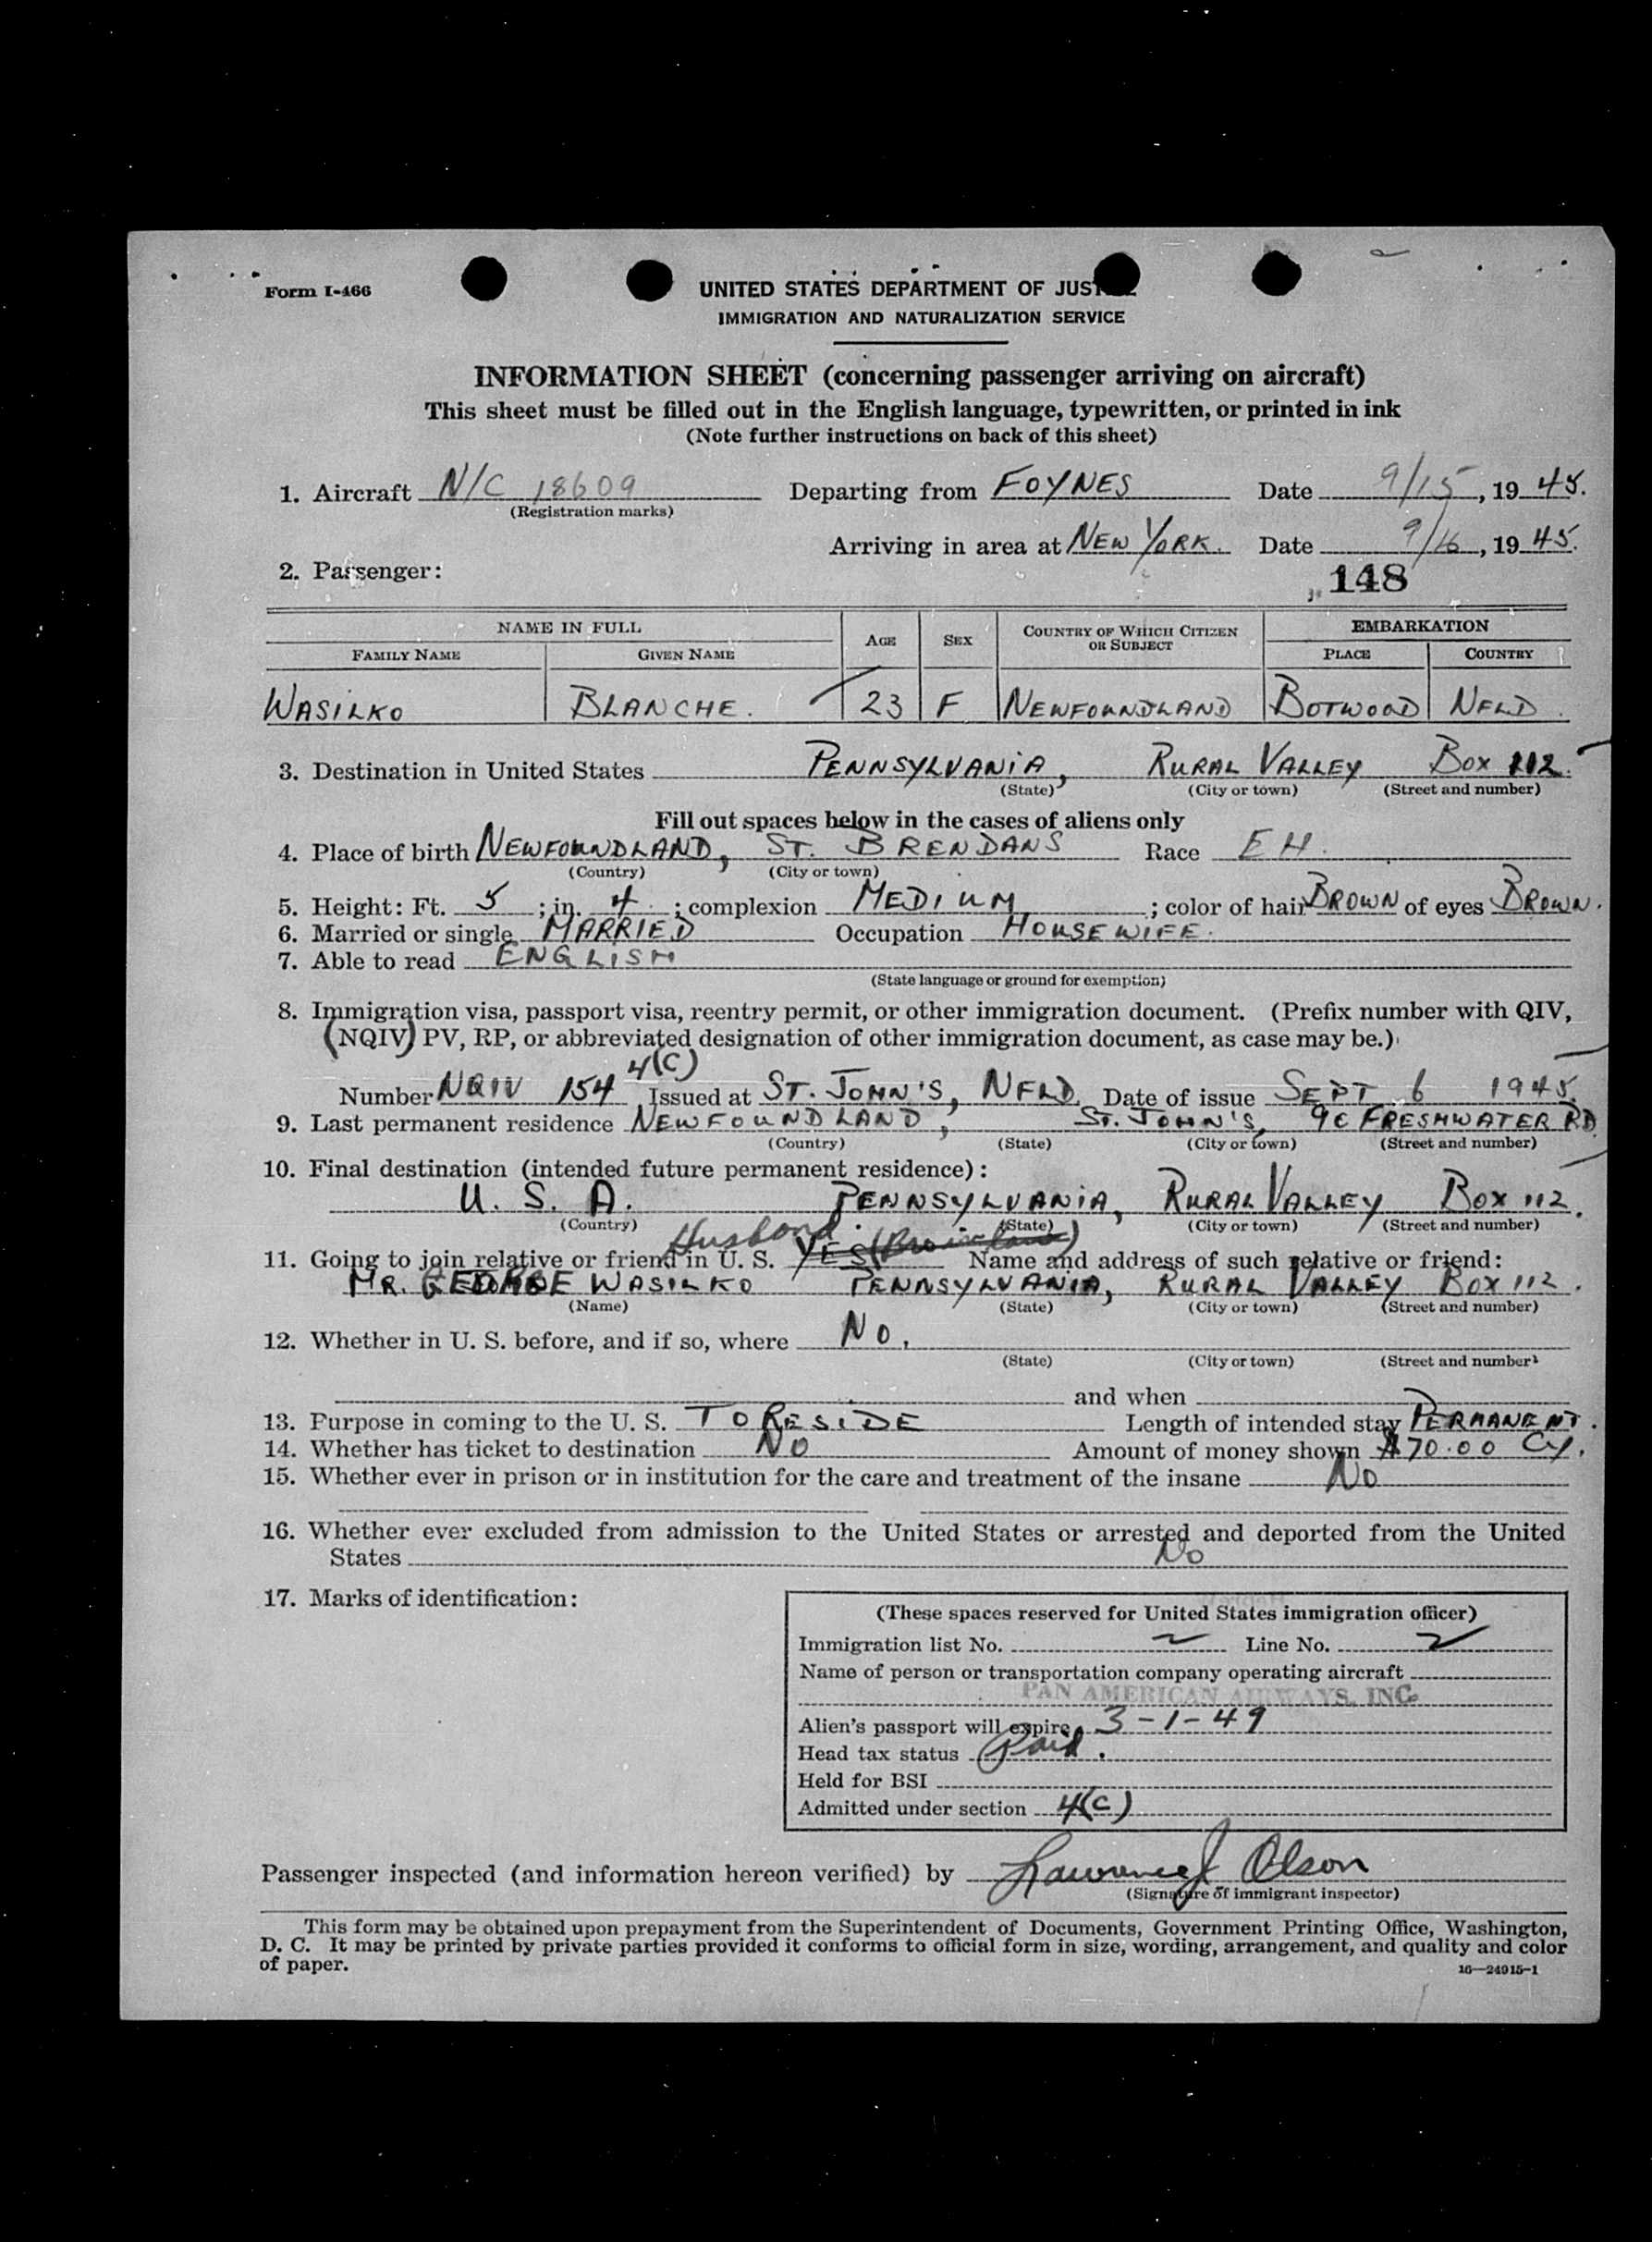 Form I-466
UNITED STATES DEPARTMENT OF JUS
IMMIGRATION AND NATURALIZATION SERVICE
INFORMATION SHEET (concerning passenger arriving on aircraft)
This sheet must be filled out in the English language, typewritten, or printed in ink
(Note further instructions on back of this sheet)
1. Aircraft N/C 18609 Departing from FOYNES Date 9/15, 19 45.
(Registration marks)
Arriving in area at NEW YORK. Date 9/16, 19 45.
2. Passenger: 148
NAME IN FULL AGE SEX COUNTRY OF WHICH CITIZEN OR SUBJECT EMBARKATION
FAMILY NAME GIVEN NAME PLACE COUNTRY
WASILKO BLANCHE. 23 F NEWFOUNDLAND BOTWOOD NFLD.
3. Destination in United States PENNSYLVANIA, RURAL VALLEY BOX 112.
(State) (City or town) (Street and number)
Fill out spaces below in the cases of aliens only
4. Place of birth NEWFOUNDLAND, ST. BRENDANS Race EH.
(Country) (City or town)
5. Height: Ft. 5; in. 4; complexion MEDIUM; color of hair BROWN of eyes BROWN.
6. Married or single MARRIED Occupation HOUSEWIFE.
7. Able to read ENGLISH
(State language or ground for exemption)
8. Immigration visa, passport visa, reentry permit, or other immigration document. (Prefix number with QIV,
(NQIV) PV, RP, or abbreviated designation of other immigration document, as case may be.)
4(C)
Number NQIV 154 Issued at ST. JOHN'S, NFLD. Date of issue SEPT 6 1945.
9. Last permanent residence NEWFOUNDLAND, ST. JOHN'S, FRESHWATER RD.
(Country) (State) (City or town) (Street and number)
10. Final destination (intended future permanent residence):
U. S. A. PENNSYLVANIA, RURAL VALLEY BOX 112.
(Country) (State) (City or town) (Street and number)
Husband.
11. Going to join relative or friend in U. S. YES Name and address of such relative or friend:
MR. GEORGE WASILKO PENNSYLVANIA, RURAL VALLEY BOX 112.
(Name) (State) (City or town) (Street and number)
12. Whether in U. S. before, and if so, where NO.
(State) (City or town) (Street and number)
and when
13. Purpose in coming to the U. S. TO RESIDE Length of intended stay PERMANENT.
14. Whether has ticket to destination NO Amount of money shown $70.00 Cy.
15. Whether ever in prison or in institution for the care and treatment of the insane NO
16. Whether ever excluded from admission to the United States or arrested and deported from the United
States NO
17. Marks of identification:
(These spaces reserved for United States immigration officer)
Immigration list No. 2 Line No. 2
Name of person or transportation company operating aircraft
PAN AMERICAN AIRWAYS, INC.
Alien's passport will expire 3-1-49
Head tax status Paid.
Held for BSI
Admitted under section 4(c)
Passenger inspected (and information hereon verified) by Lawrence J Olson
(Signature of immigrant inspector)
This form may be obtained upon prepayment from the Superintendent of Documents, Government Printing Office, Washington,
D. C. It may be printed by private parties provided it conforms to official form in size, wording, arrangement, and quality and color
of paper.
16—24915-1